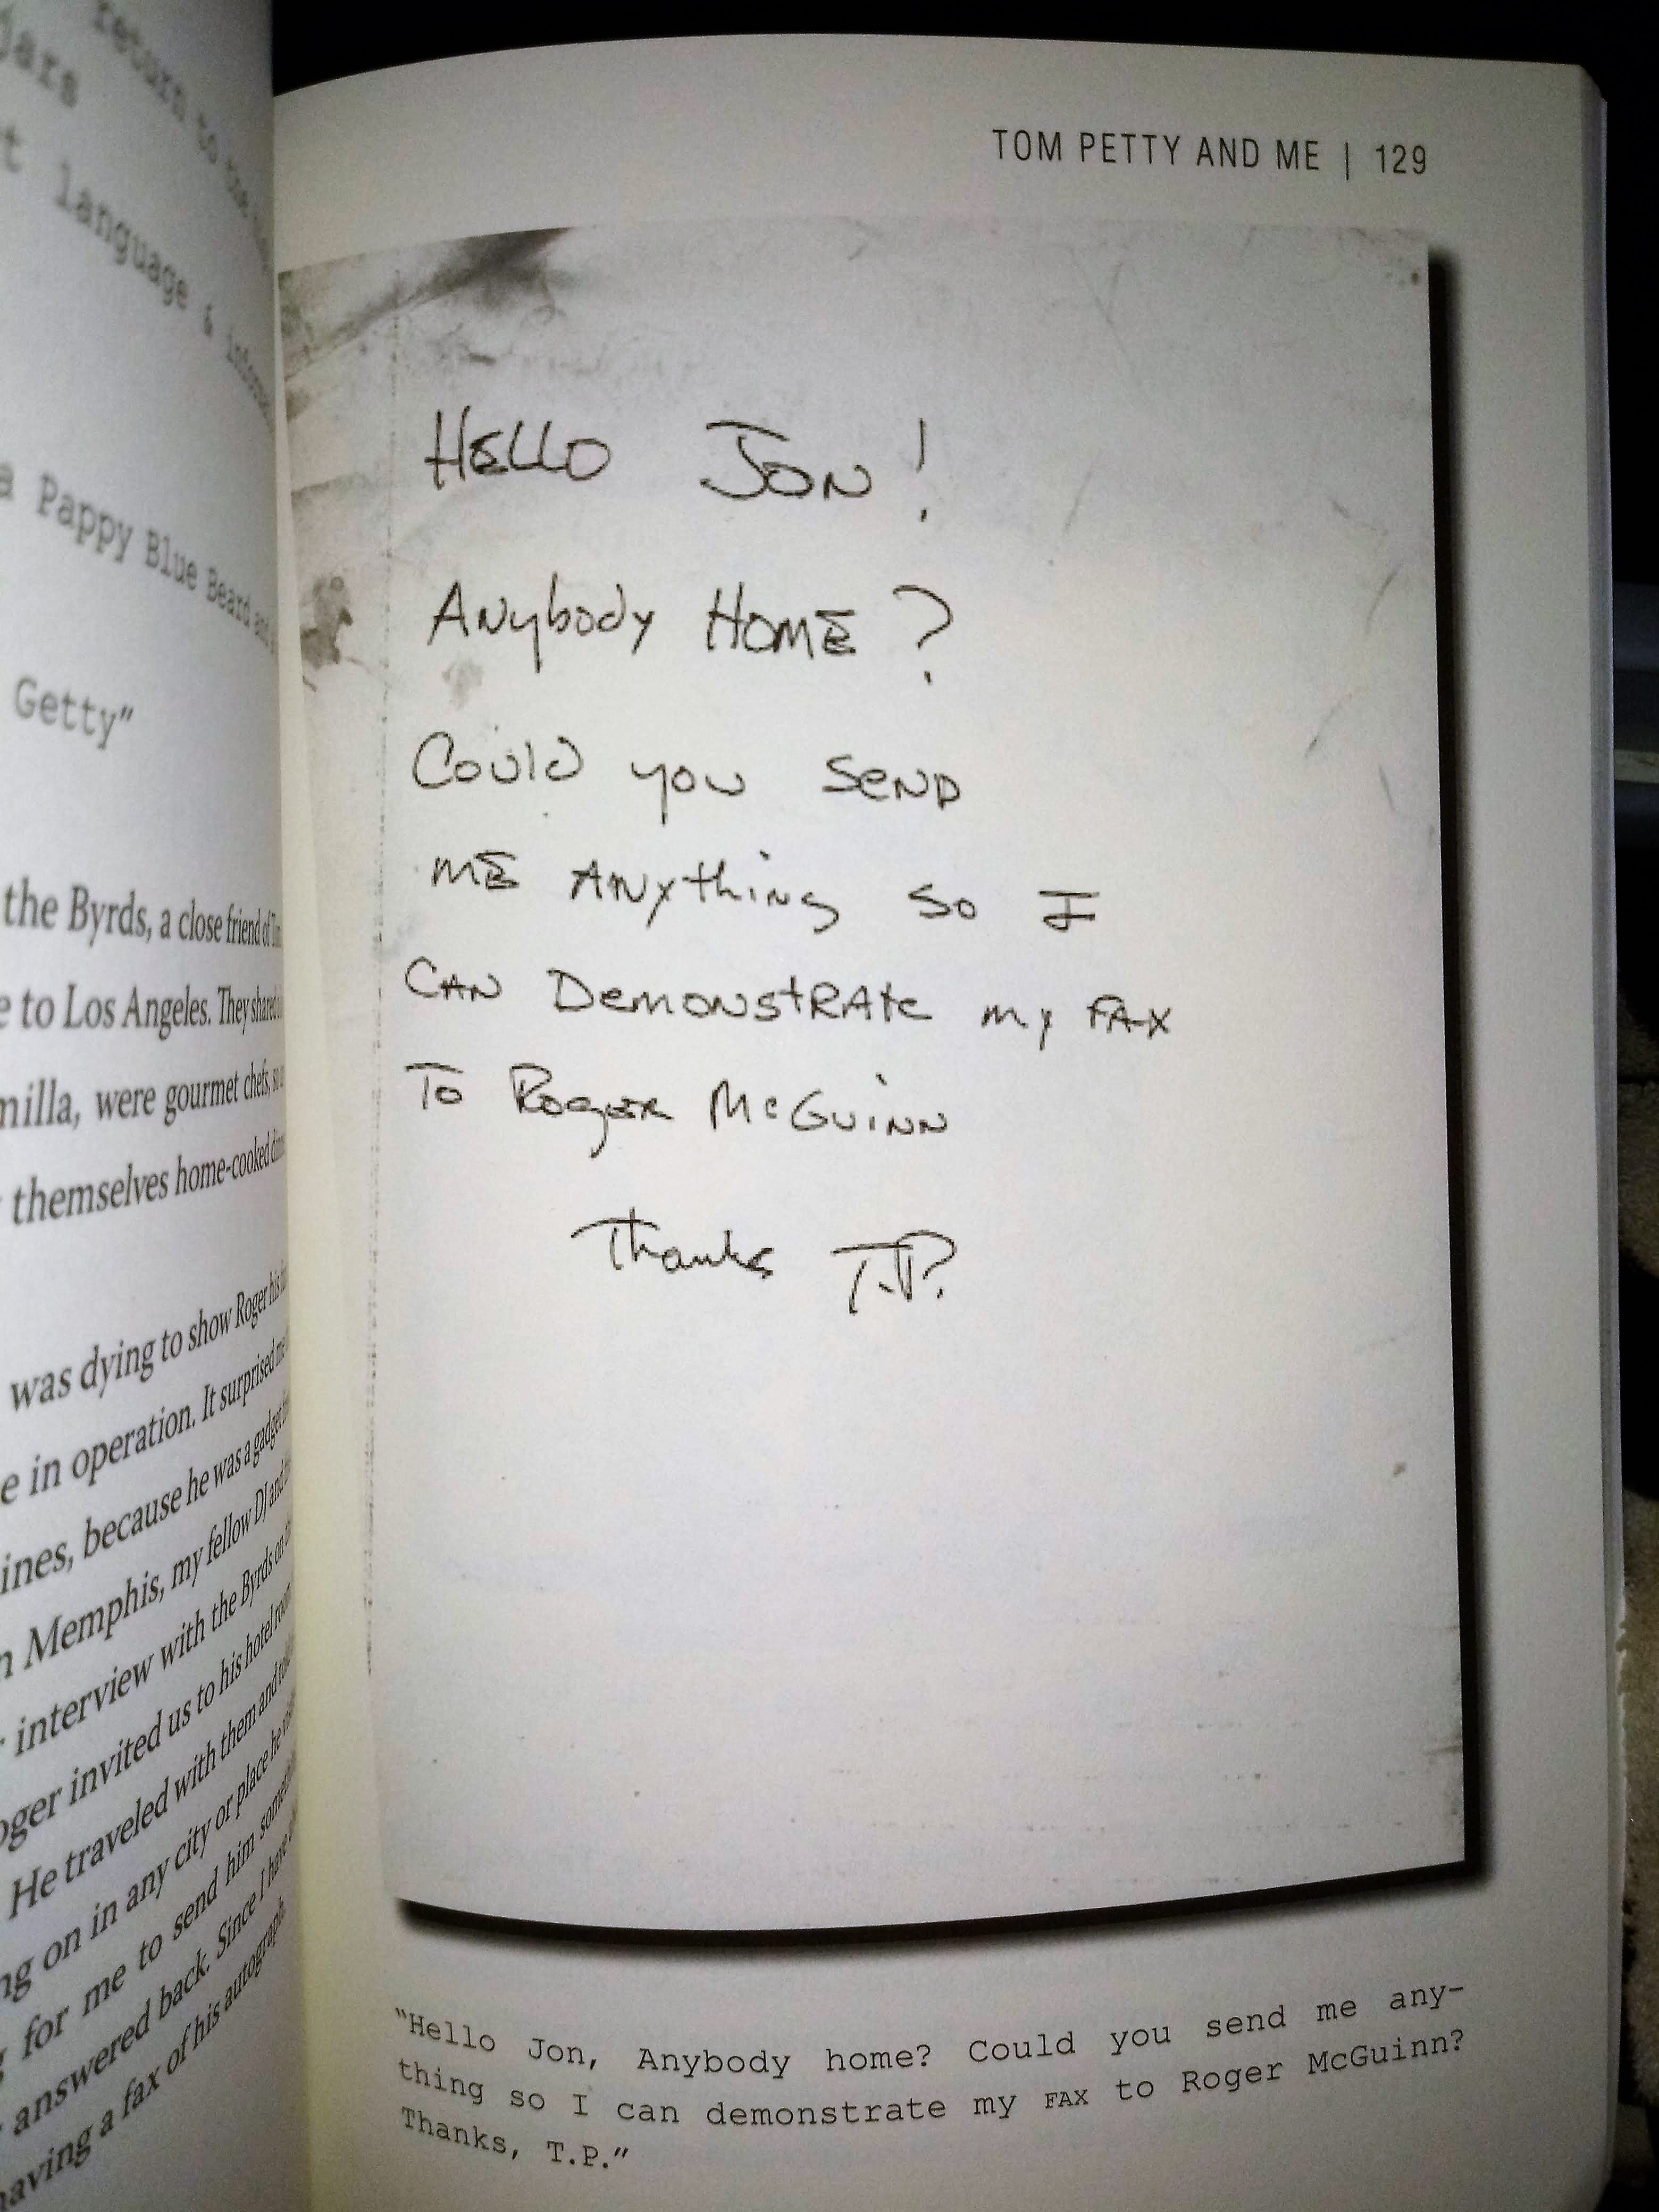 return to the
jars
t language & inform
a Pappy Blue Beard and
Getty”
the Byrds, a close friend of
e to Los Angeles. They shared
milla, were gourmet chefs,
themselves home-cooked
was dying to show Roger his
e in operation. It surprised me
ines, because he was a gadget
n Memphis, my fellow DJ and
interview with the Byrds on
oger invited us to his hotel room
He traveled with them and
ng on in any city or place he
g for me to send him
answered back. Since I have
aving a fax of his autograph.
TOM PETTY AND ME | 129
HELLO JON!
ANybody HOME?
Could you SeND
ME ANything So I
CAN DemoNstRAte my FAX
To Roger McGuiNN
Thanks T.P.
“Hello Jon, Anybody home? Could you send me any-
thing so I can demonstrate my FAX to Roger McGuinn?
Thanks, T.P.”